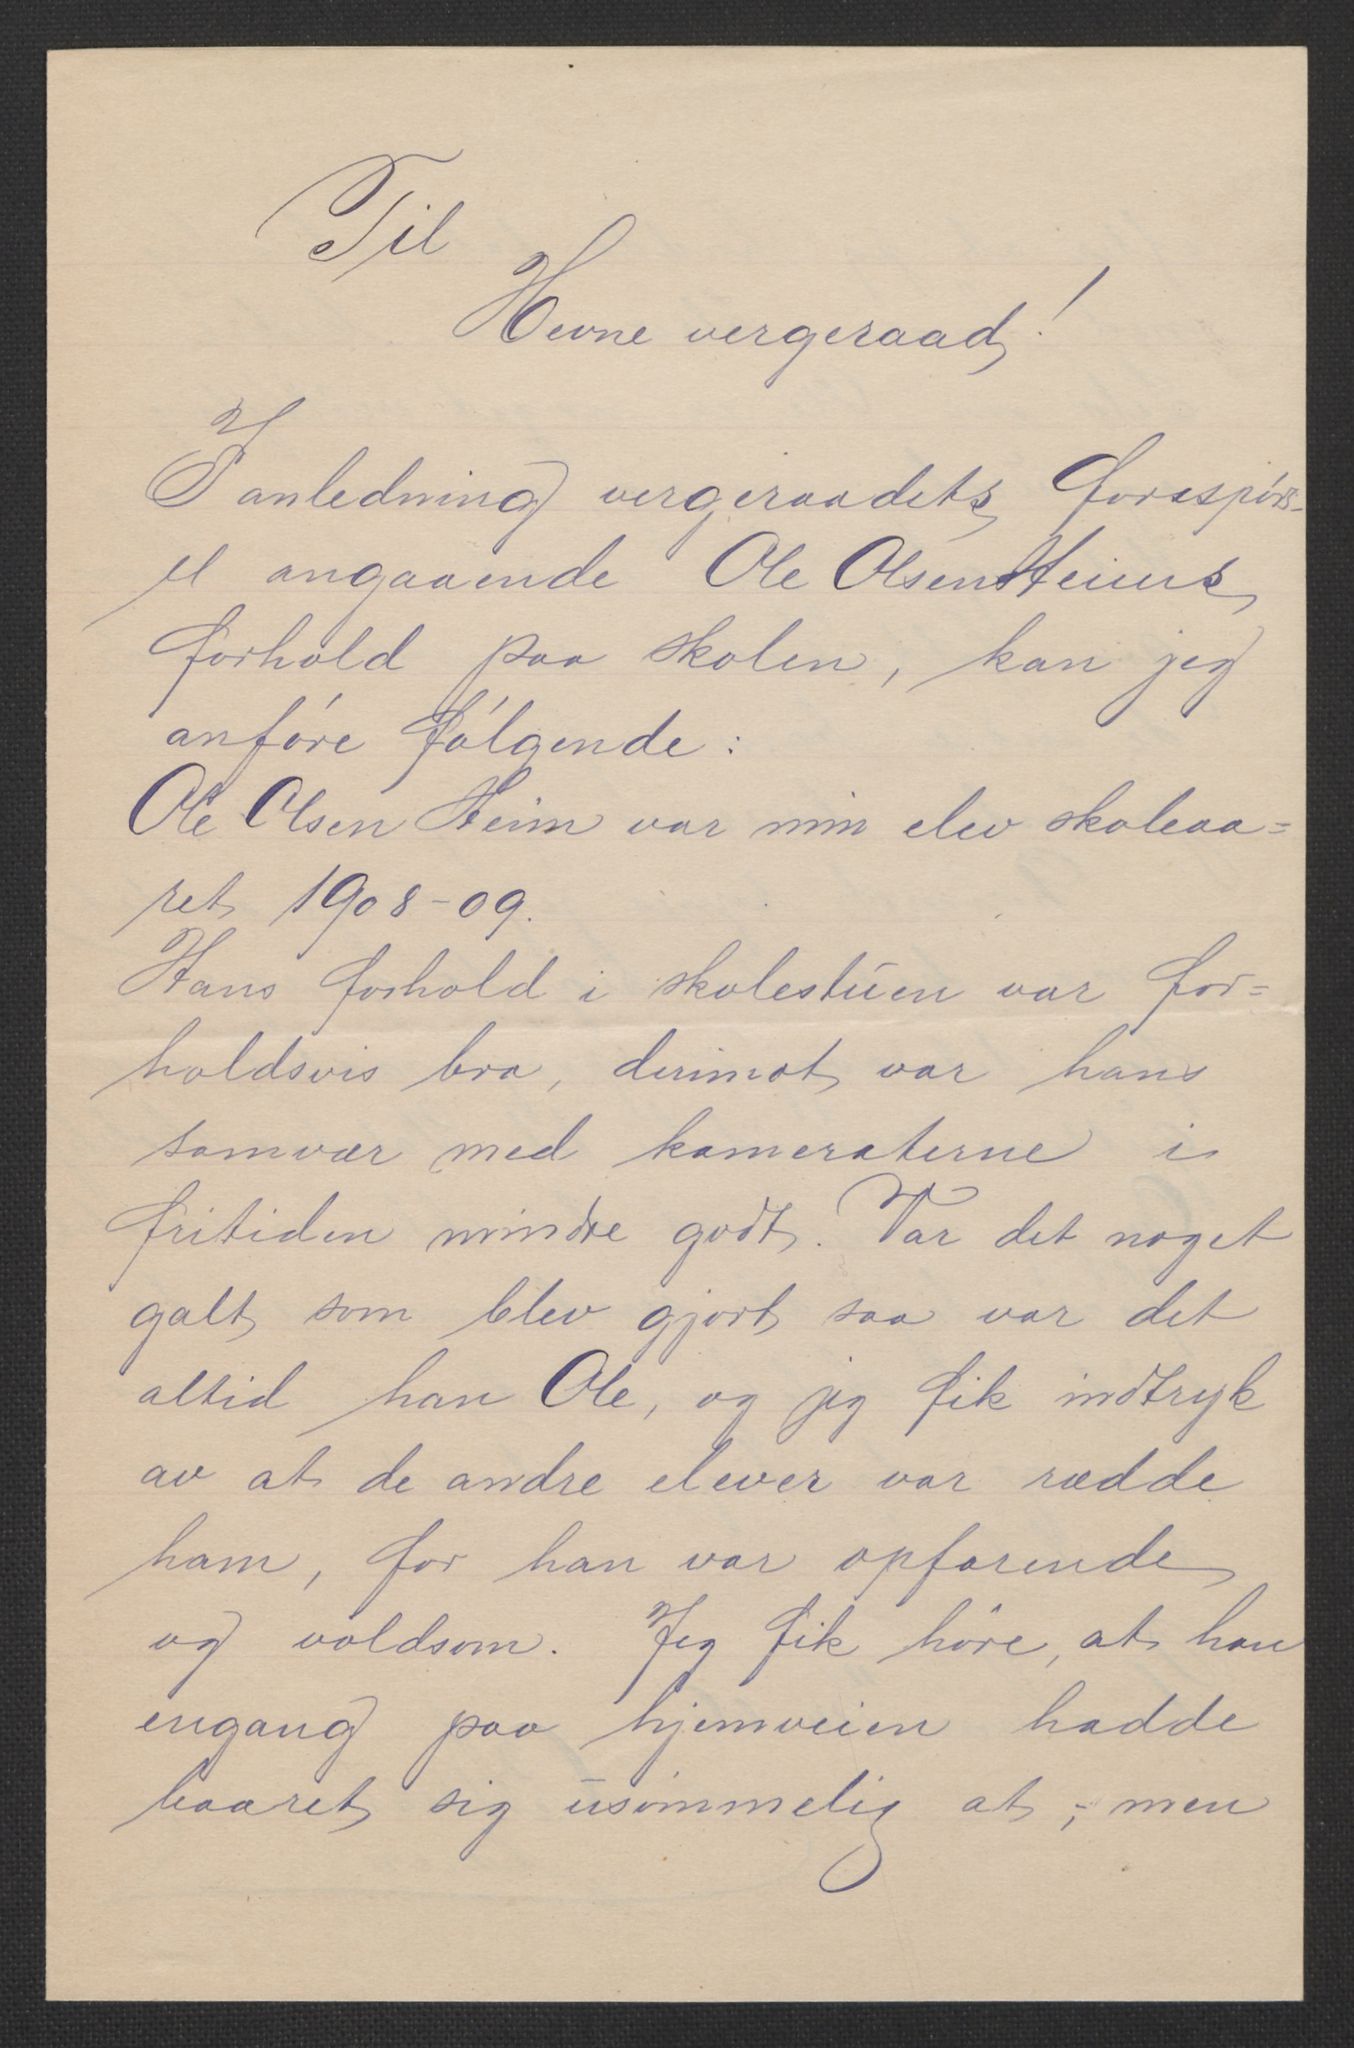 Til
Hevne vergeraad!
I anledning vergeraadets forespørs-
el angaaende Ole Olsen Heims
forhold paa skolen, kan jeg
anføre følgende:
Ole Olsen Heim var min elev skoleaa=
ret 1908-09.
Hans forhold i skolestuen var for=
holdsvis bra, derimot var hans
samvær med kameraterne i
fritiden mindre godt. Var det noget
galt som blev gjort saa var det
altid han Ole, og jeg fik indtryk
av at de andre elever var rædde
ham, for han var opfarende
og voldsom. Jeg fik høre, at han
engang paa hjemveien hadde
baaret sig usømmelig at; men